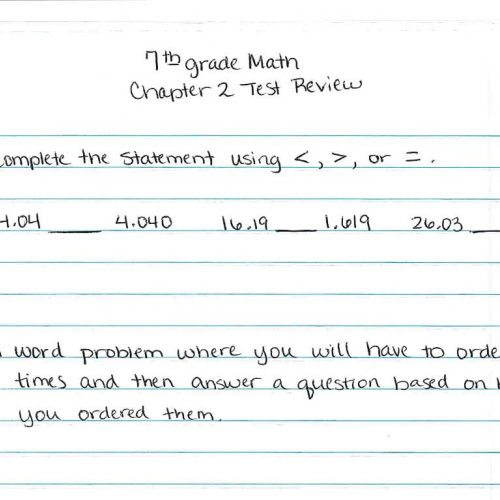 7th grade Math
Chapter 2 Test Review
complete the statement using <, >, or =.
4.04 ____ 4.040 16.19 ____ 1.619 26.03 __
word problem where you will have to orde
times and then answer a question based on
you ordered them.